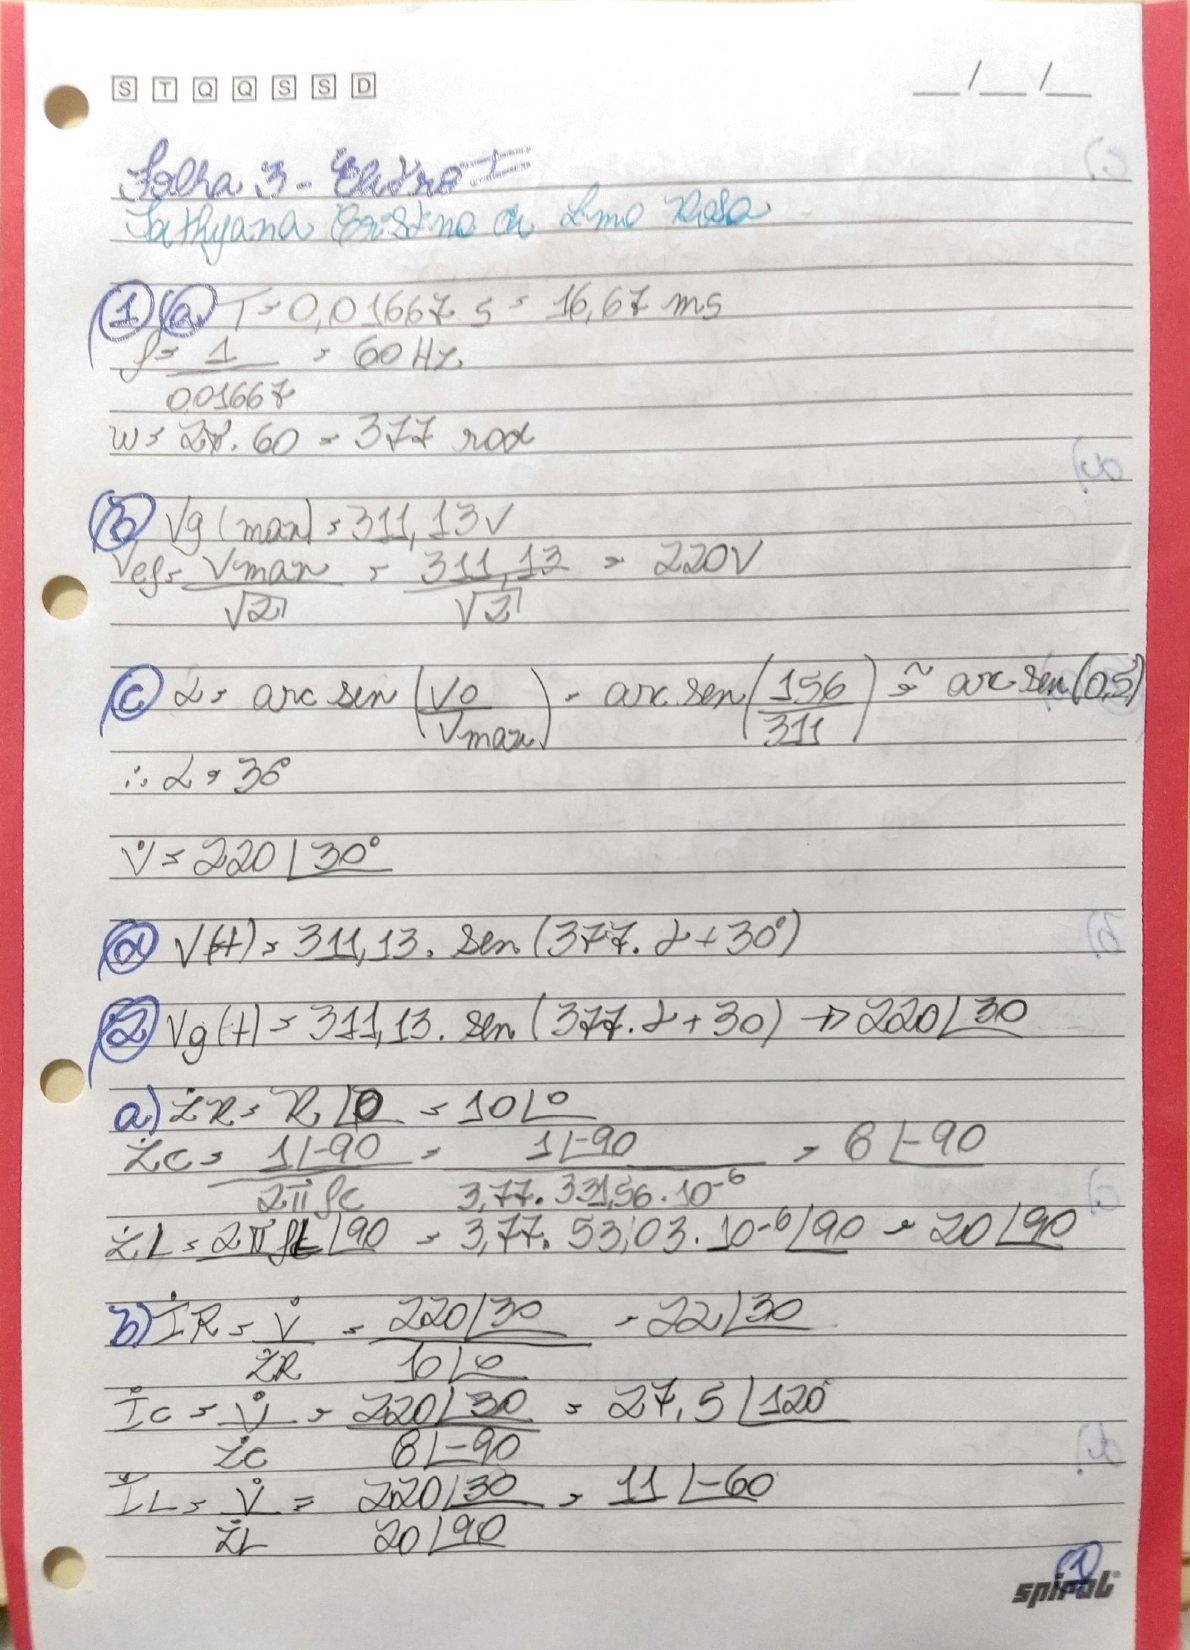 S T Q Q S S D
__/__/__
Folha 3 - Eletrot
Tathyana Cristina de Lima Rosa
1 a T = 0,01667 s = 16,67 ms
f = 1 = 60 Hz
0,01667
w = 2π. 60 = 377 rad
b Vg (max) = 311,13V
Vef = Vmax = 311,13 = 220V
√2 √2
c α = arc sen (Vo/Vmax) = arc sen (156/311) ≅ arc sen (0,5)
∴ α = 30°
V̇ = 220 ∠30°
d V(t) = 311,13. sen (377. t + 30°)
2 Vg(t) = 311,13. sen (377. t + 30) → 220∠30
a) ŻR = R∠0 = 10∠0
ŻC = 1∠-90 = 1∠-90 = 8∠-90
2πfC 3,77. 331,56. 10⁻⁶
ŻL = 2πfL∠90 = 3,77. 53,03. 10⁻⁶∠90 = 20∠90
b) İR = V̇ = 220∠30 = 22∠30
ŻR 10∠0
İC = V̇ = 220∠30 = 27,5∠120
ŻC 8∠-90
İL = V̇ = 220∠30 = 11∠-60
ŻL 20∠90
1
spiral